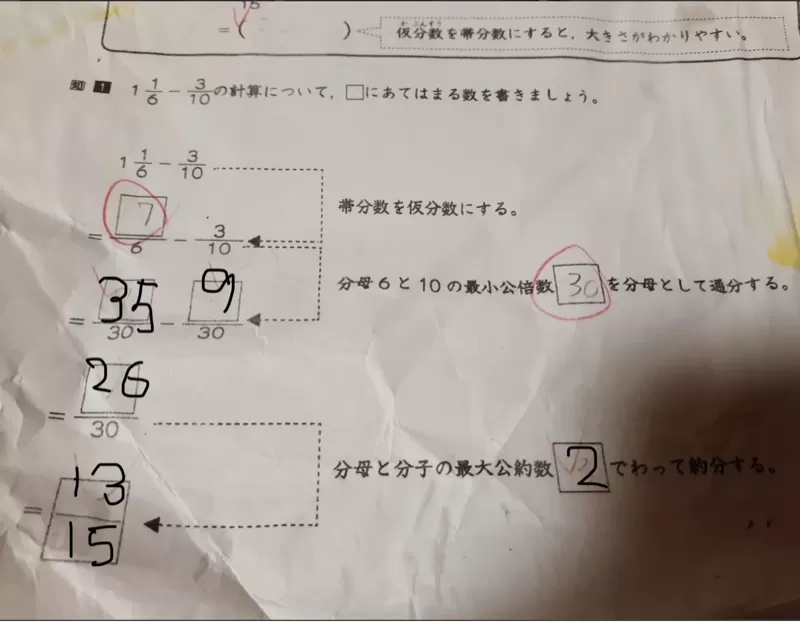 15
= ( )
仮分数を帯分数にすると、大きさがわかりやすい。
かぶんすう
知 1 1 1/6 − 3/10の計算について、□にあてはまる数を書きましょう。
1 1/6 − 3/10
= 7/6 − 3/10
帯分数を仮分数にする。
= 35/30 − 9/30
分母6と10の最小公倍数30を分母として通分する。
= 26/30
= 13/15
分母と分子の最大公約数2でわって約分する。